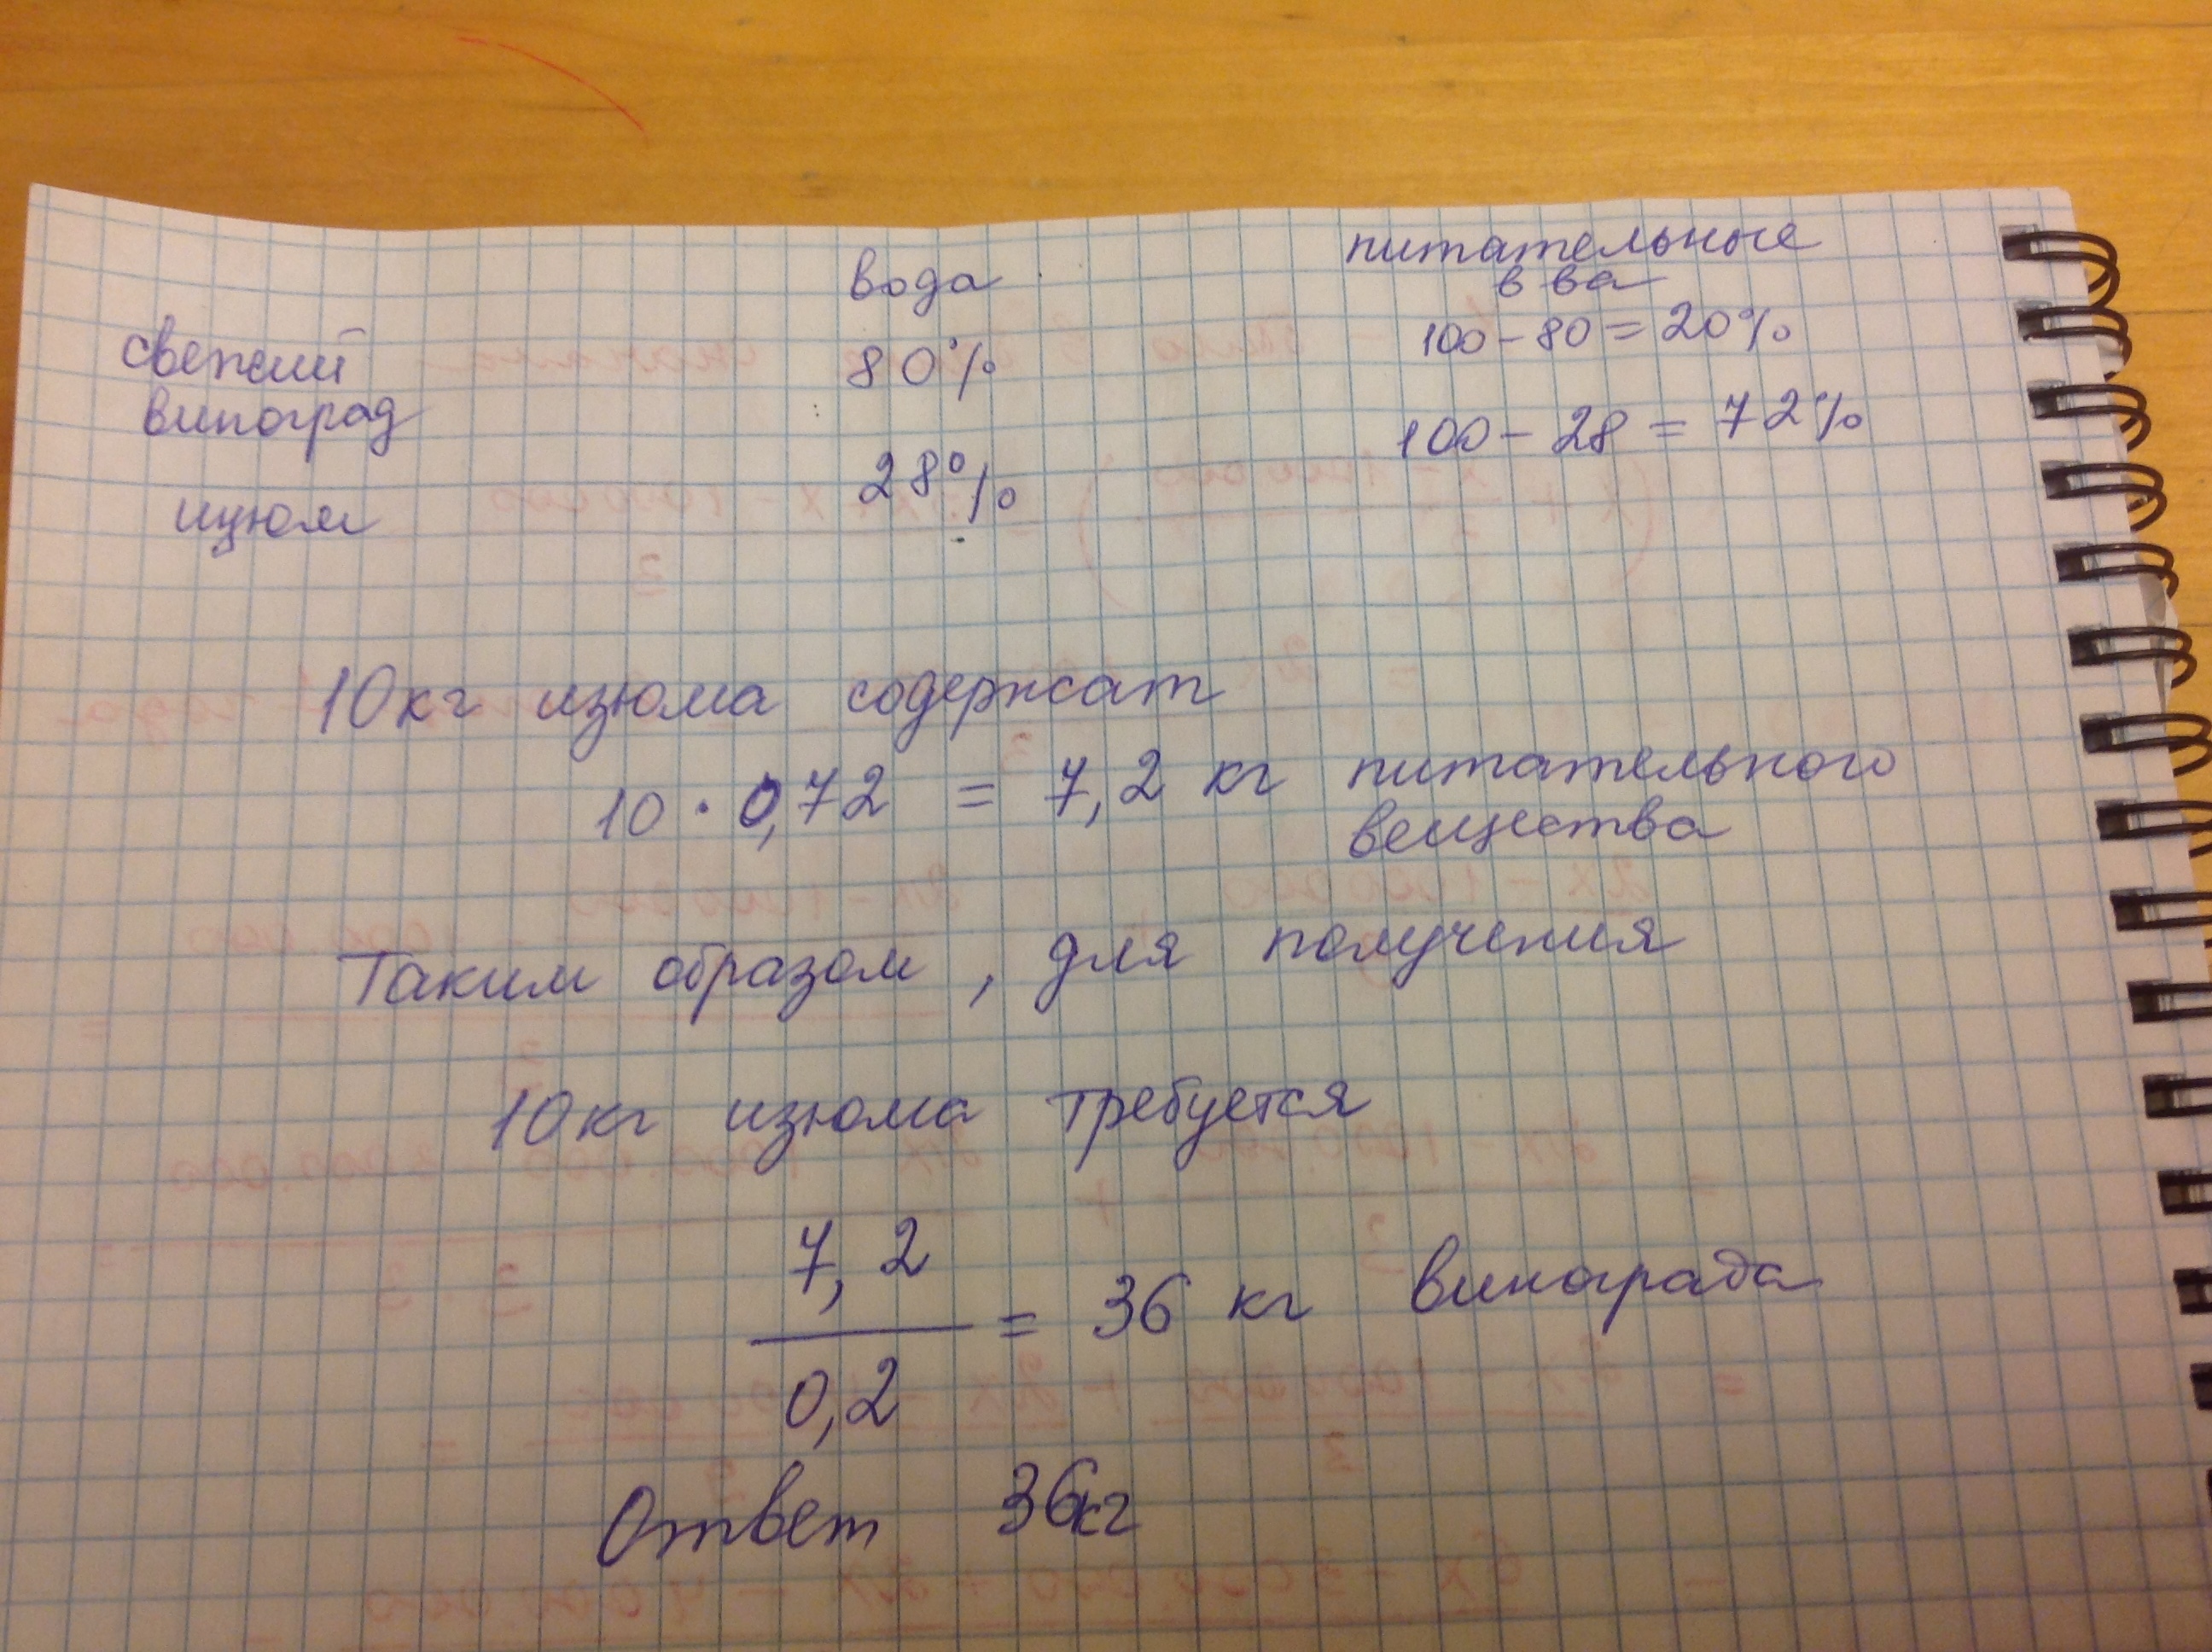 вода питательные
в ва
свежий 80% 100-80=20%
виноград
изюм 28% 100-28=72%
10кг изюма содержат
10·0,72 = 7,2 кг питательного
вещества
Таким образом, для получения
10кг изюма требуется
7,2
= 36 кг винограда
0,2
Ответ 36кг